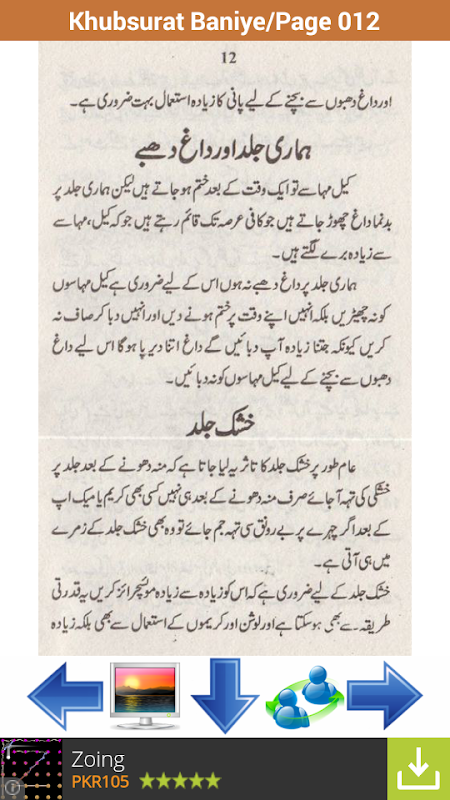 Khubsurat Baniye/Page 012
12
اور داغ دھبوں سے بچنے کے لیے پانی کا زیادہ استعمال بہت ضروری ہے۔
ہماری جلد اور داغ دھبے
کیل مہاسے تو ایک وقت کے بعد ختم ہو جاتے ہیں لیکن ہماری جلد پر
بدنما داغ چھوڑ جاتے ہیں جو کافی عرصہ تک قائم رہتے ہیں جو کہ کیل، مہاسے
سے زیادہ برے لگتے ہیں۔
ہماری جلد پر داغ دھبے نہ ہوں اس کے لیے ضروری ہے کیل مہاسوں
کو نہ چھیڑیں بلکہ انہیں اپنے وقت پر ختم ہونے دیں اور انہیں دبا کر صاف نہ
کریں کیونکہ جتنا زیادہ آپ دبائیں گے داغ اتنا دیر پا ہوگا اس لیے داغ
دھبوں سے بچنے کے لیے کیل مہاسوں کو نہ دبائیں۔
خشک جلد
عام طور پر خشک جلد کا تاثر یہ لیا جاتا ہے کہ منہ دھونے کے بعد جلد پر
خشکی کی تہہ آ جائے صرف منہ دھونے کے بعد ہی نہیں کسی بھی کریم یا میک اپ
کے بعد اگر چہرے پر بے رونق سی تہہ جم جائے تو وہ بھی خشک جلد کے زمرے
میں ہی آتی ہے۔
خشک جلد کے لیے ضروری ہے کہ اس کو زیادہ سے زیادہ موئسچرائز کریں یہ قدرتی
طریقہ سے بھی ہو سکتا ہے اور لوشن اور کریموں کے استعمال سے بھی بلکہ زیادہ
Zoing
PKR105